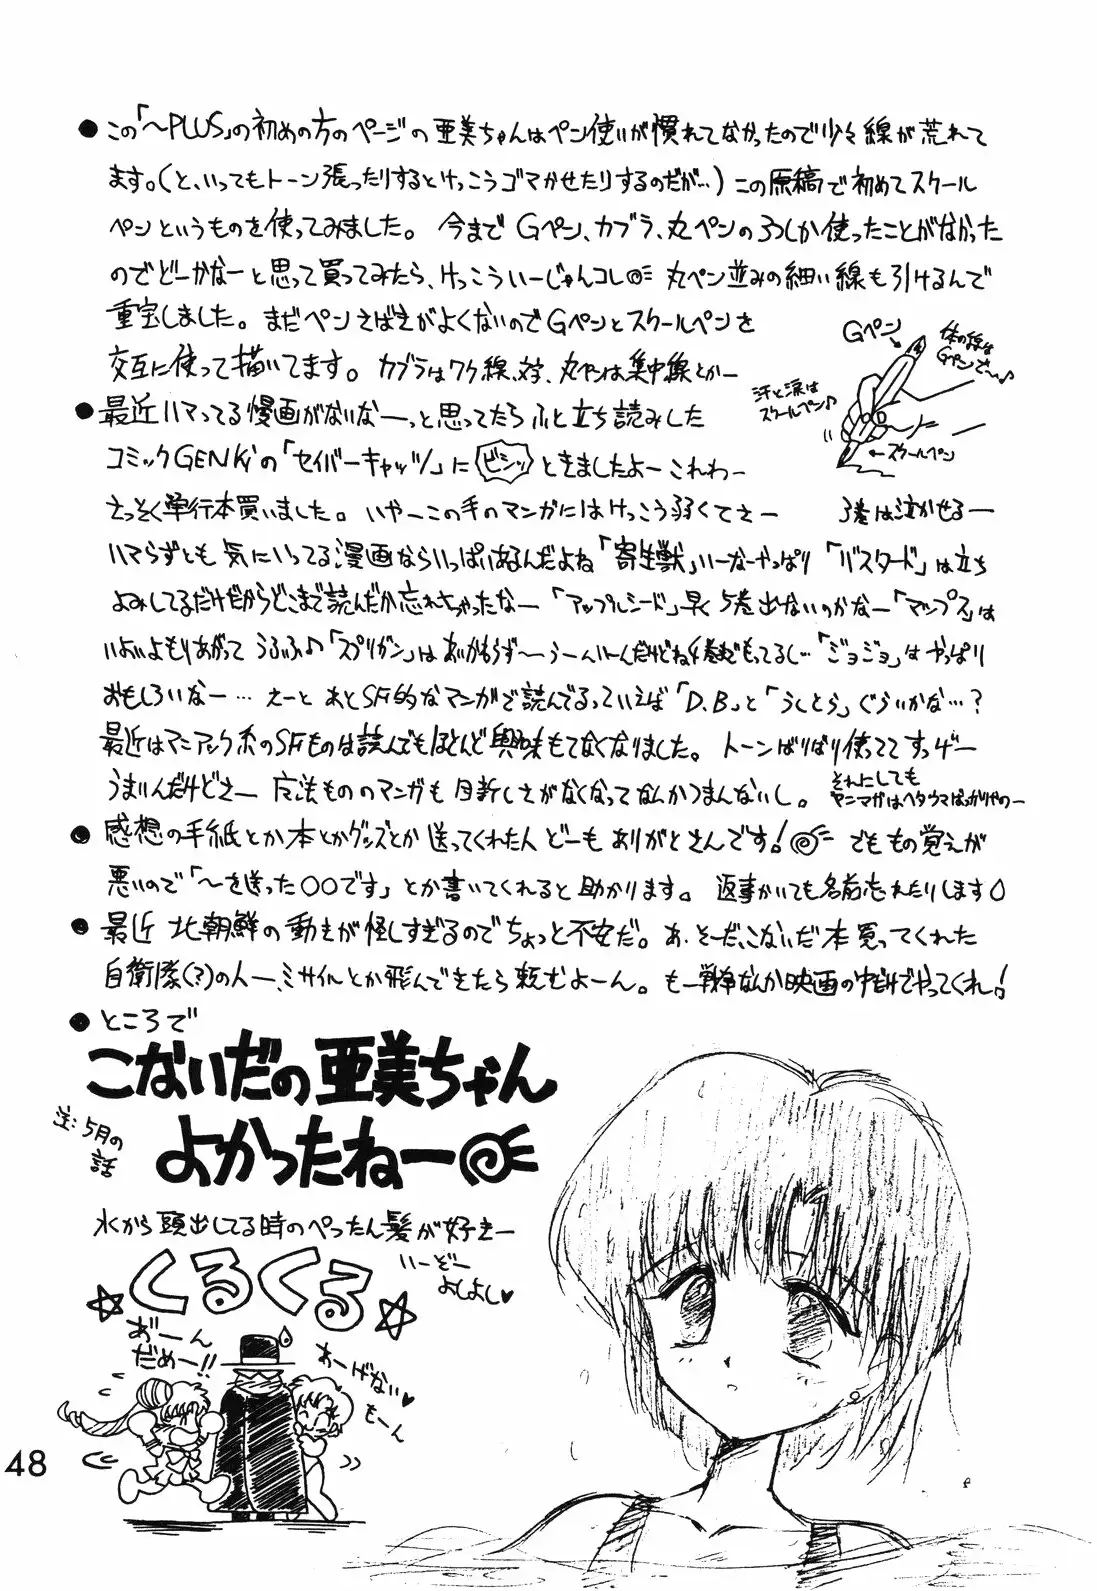 ●この「〜PLUS」の初めの方のページの亜美ちゃんはペン使いが慣れてなかったので少々線が荒れて
ます。(と、いってもトーン張ったりするとけっこうゴマかせたりするのだが…)この原稿で初めてスクール
ペンというものを使ってみました。今までGペン、カブラ、丸ペンの3つしか使ったことがなかった
のでどーかなーと思って買ってみたら、けっこういーじゃんコレ 丸ペン並みの細い線も引けるんで
重宝しました。まだペンさばきがよくないのでGペンとスクールペンを
交互に使って描いてます。カブラはワク線、丸ペンは集中線とかー
Gペン
体の線は
Gペンで〜♪
汗と涙は
スクールペン♪
←スクールペン
●最近ハマってる漫画がないなーっと思ってたらふと立ち読みした
コミックGENKiの「セイバーキャッツ」に ビシッ ときましたよーこれわー
さっそく単行本買いました。いやーこの手のマンガにはけっこう弱くてさー 3巻は泣かせるー
ハマらずとも気にいってる漫画ならいっぱいあるんだよね「寄生獣」いーなーやっぱり「バスタード」は立ち
よみしてるだけだからどこまで読んだか忘れちゃったなー「アップルシード」早く5巻出ないのかなー「マップス」は
いよいよもりあがってうふふ♪「スプリガン」はあいかわらず〜うーんいーんだけどね4巻までもってるし…「ジョジョ」はやっぱり
おもしろいなー…えーとあとSF的なマンガで読んでるっていえば「D.B」と「うしとら」ぐらいかな…?
最近はマニアック系のSFものは読んでもほとんど興味もてなくなりました。トーンばりばり使っててすっげー
うまいんだけどさー 魔法もののマンガも目新しさがなくなってなんかつまんないし。
それにしても
ヤニマガはヘタウマばっかりやのー
●感想の手紙とか本とかグッズとか送ってくれた人どーもありがとさんです! でももの覚えが
悪いので「〜を送った○○です」とか書いてくれると助かります。返事かいても名前忘れたりします
●最近北朝鮮の動きが怪しすぎるのでちょっと不安だ。あ、そーだ、こないだ本買ってくれた
自衛隊(?)の人ー、ミサイルとか飛んできたら頼むよーん。もー戦争なんか映画の中だけでやってくれ!
●ところで
こないだの亜美ちゃん
よかったねー
注:5月の
話
水から頭出してる時のぺったん髪が好きー
いーぞー
よしよし♥
☆くるくる☆
あ゛ーん
だめー!!
あーげない♥
もーん
48